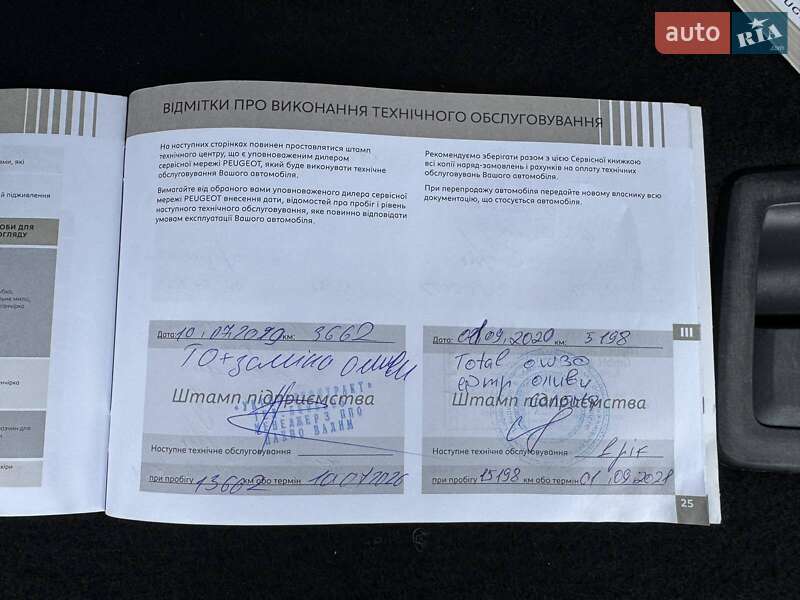 auto RIA .com
ами, які
й підживлення
ОБИ ДЛЯ
ОГЛЯДУ
ВІДМІТКИ ПРО ВИКОНАННЯ ТЕХНІЧНОГО ОБСЛУГОВУВАННЯ
На наступних сторінках повинен проставлятися штамп
технічного центру, що є уповноваженим дилером
сервісної мережі PEUGEOT, який буде виконувати технічне
обслуговування Вашого автомобіля.
Вимагайте від обраного вами уповноваженого дилера сервісної
мережі PEUGEOT внесення дати, відомостей про пробіг і рівень
наступного технічного обслуговування, яке повинно відповідати
умовам експлуатації Вашого автомобіля.
Рекомендуємо зберігати разом з цією Сервісної книжкою
всі копії наряд-замовлень і рахунків на оплату технічних
обслуговувань Вашого автомобіля.
При перепродажу автомобіля передайте новому власнику всю
документацію, що стосується автомобіля.
Дата: 10.07.2020 км: 3662
ТО+заміна оливи
Штамп підприємства
МЕНЕДЖЕР З ПРО
ПАВЛО ВАДИМ
Наступне технічне обслуговування
при пробігу 13662 км або термін 10.07.2026
Дата: 01.09.2020 км: 5198
Total 0W30
фітр оливи
Штамп підприємства
салона
Наступне технічне обслуговування 1 рік
при пробігу 15198 км або термін 01.09.2021
III
25